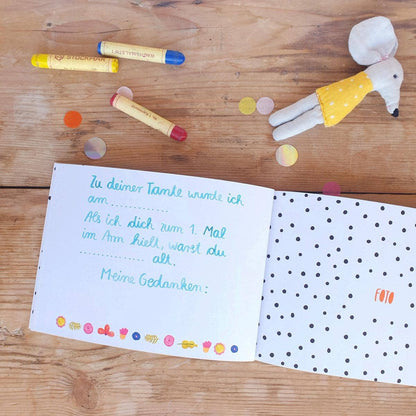 STOCKMAR
Zu deiner Tante wurde ich
am ............
Als ich dich zum 1. Mal
im Arm hielt, warst du
............... alt.
Meine Gedanken:
FOTO